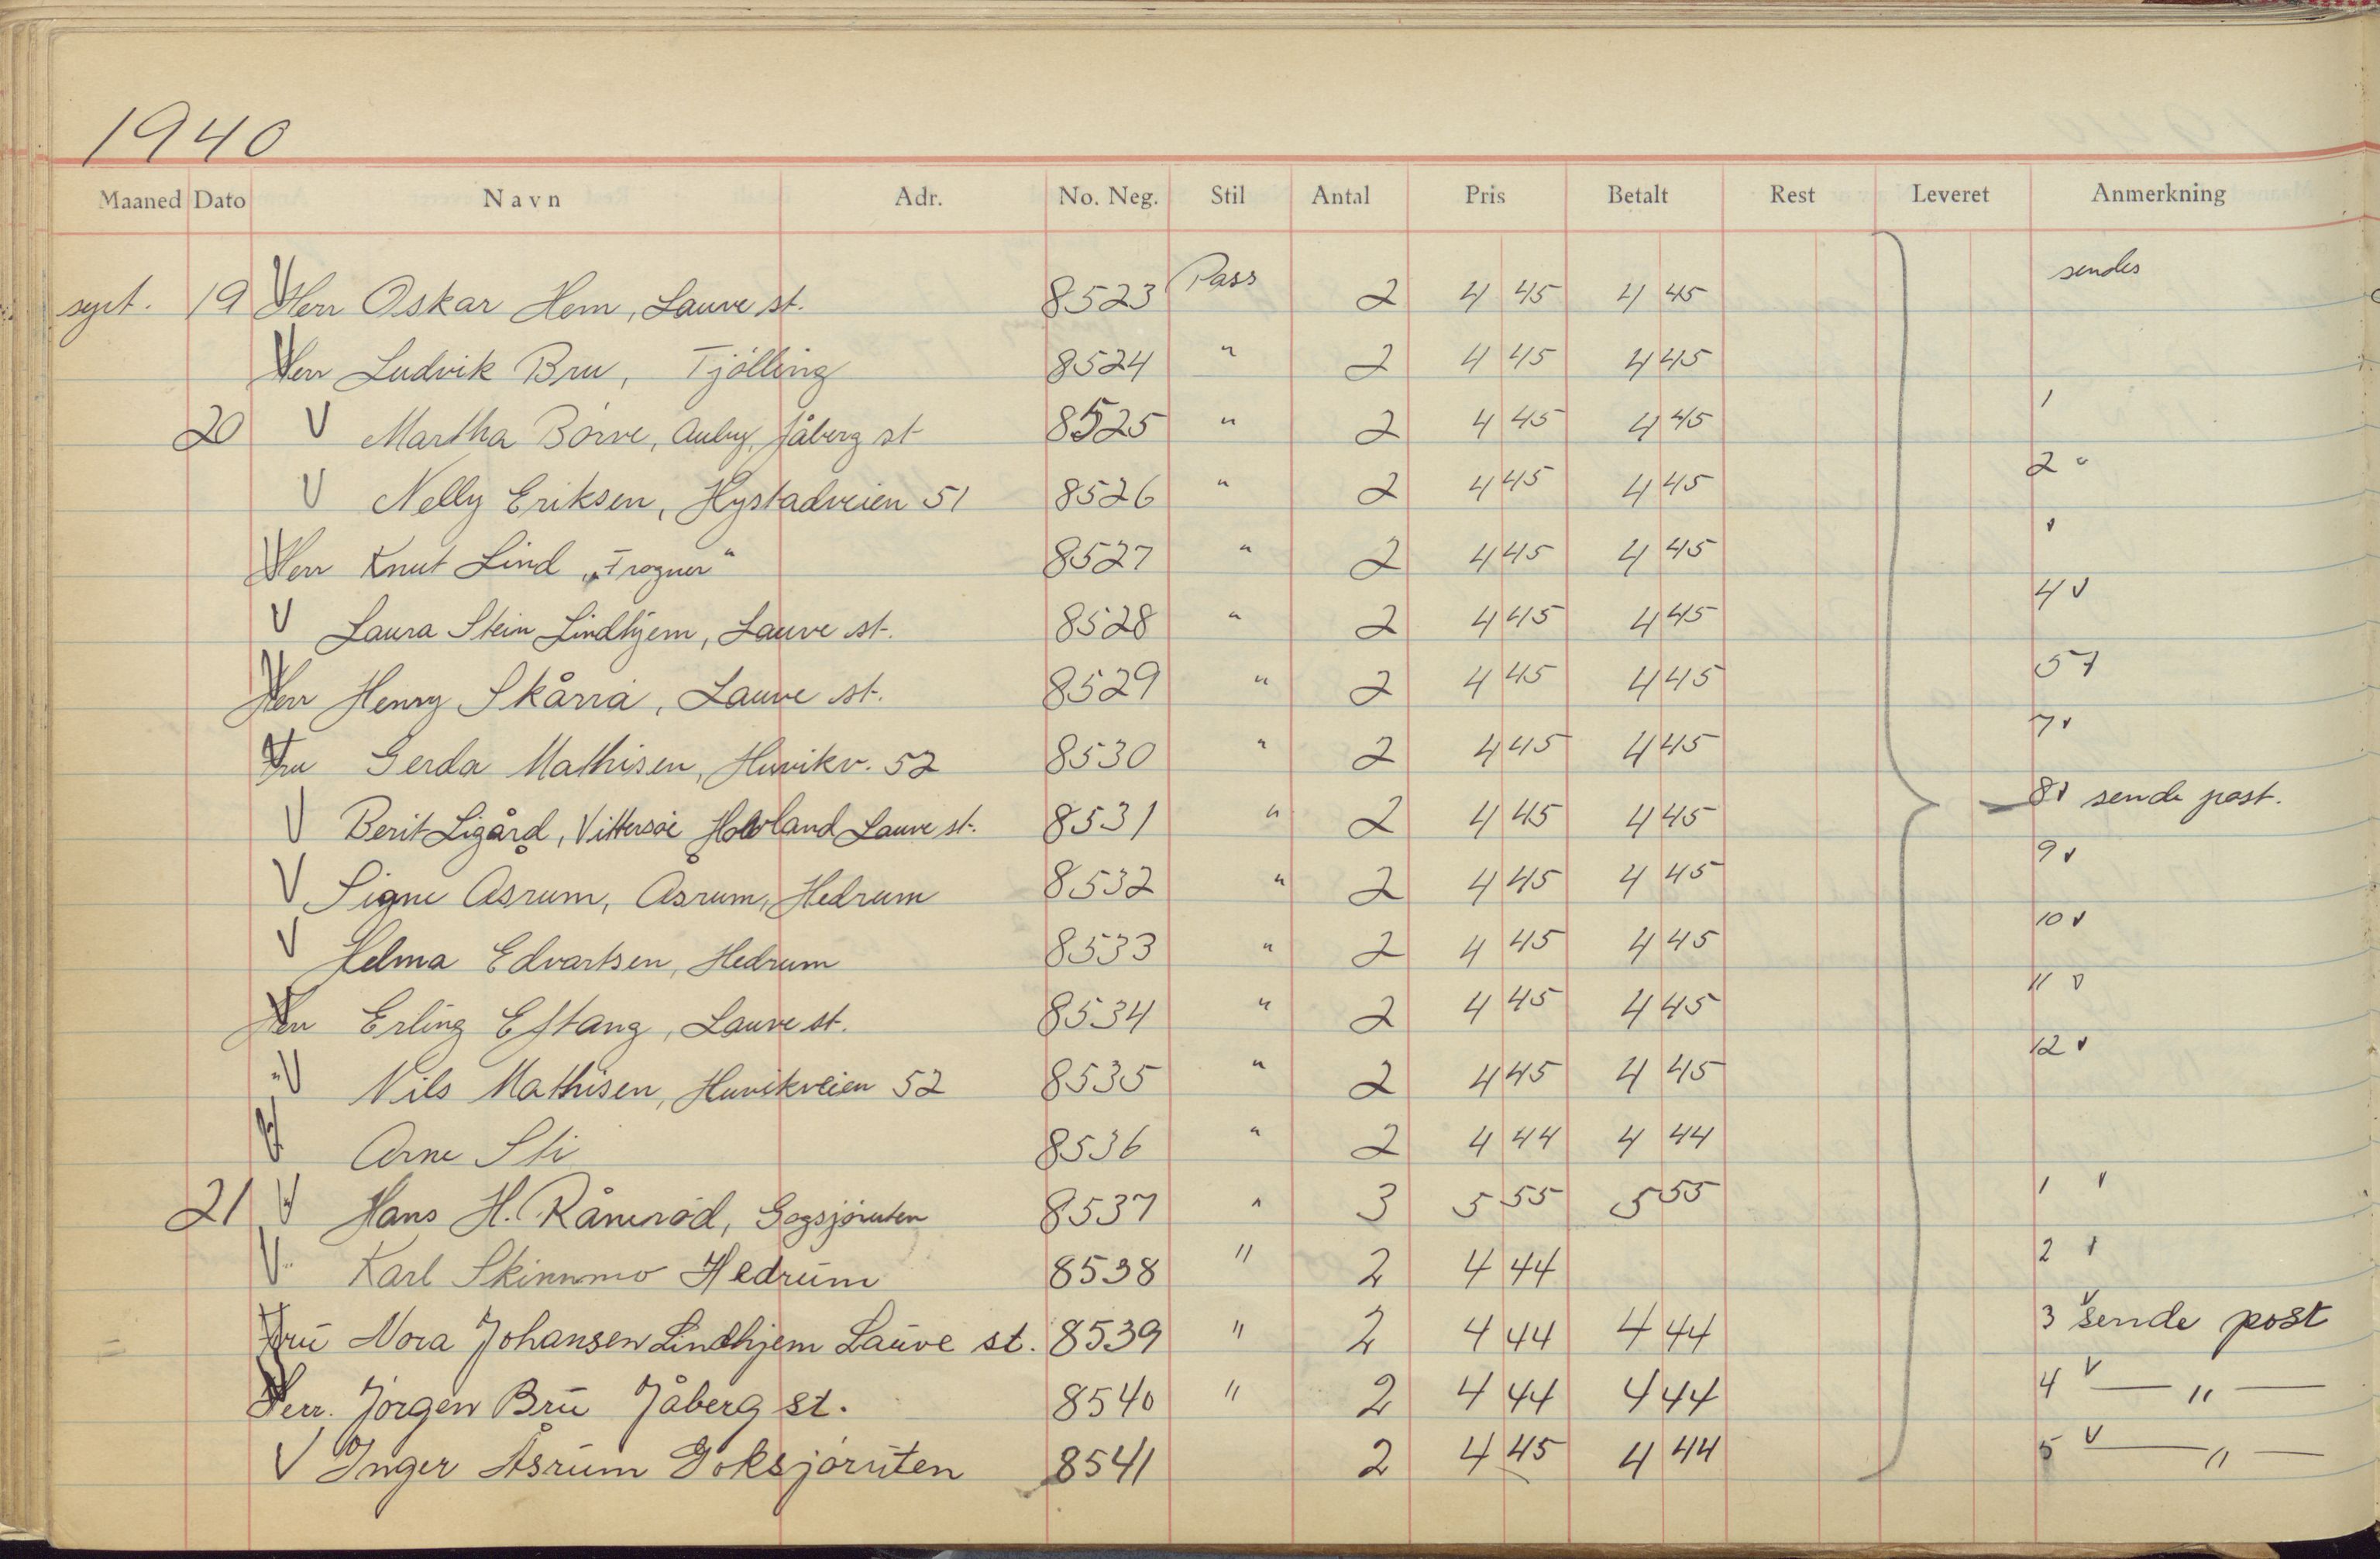 1940
Maaned Dato Navn Adr. No. Neg. Stil Antal Pris Betalt Rest Leveret Anmerkning
sept. 19 V Herr Oskar Hem, Lauve st. 8523 Pass 2 4 45 4 45 sendes
V Herr Ludvik Bru, Tjølling 8524 " 2 4 45 4 45
20 V Martha Börve, Auby, Jåberg st 8525 " 2 4 45 4 45 1
V Nelly Eriksen, Hystadveien 51 8526 " 2 4 45 4 45 2 v
V Herr Knut Lind „Trogner" 8527 " 2 4 45 4 45 v
V Laura Stein Lindhjem, Lauve st. 8528 " 2 4 45 4 45 4 v
V Herr Henry Skårra, Lauve st. 8529 " 2 4 45 4 45 5 v
V Fru Gerda Mathisen, Huvikv. 52 8530 " 2 4 45 4 45 7 v
V Berit Ligård, Vittersøe Hovland Lauve st. 8531 " 2 4 45 4 45 8 v sende post.
V Signe Åsrum, Åsrum, Hedrum 8532 " 2 4 45 4 45 9 v
V Helma Edvartsen, Hedrum 8533 " 2 4 45 4 45 10 v
V Herr Erling Eftang, Lauve st. 8534 " 2 4 45 4 45 11 v
" V Nils Mathisen, Huvikveien 52 8535 " 2 4 45 4 45 12 v
V Arne Sti 8536 " 2 4 44 4 44
21 V Hans H. Råmerød, Gogsjøruten 8537 " 3 5 55 5 55 1 v
V " Karl Skinnmo Hedrum 8538 " 2 4 44 2 v
V Fru Nora Johansen Lindhjem Lauve st. 8539 " 2 4 44 4 44 3 v sende post
V Herr. Jörgen Bru Jåberg st. 8540 " 2 4 44 4 44 4 v — " —
V Inger Åsrum Goksjøruten 8541 2 4 45 4 44 5 v — " —